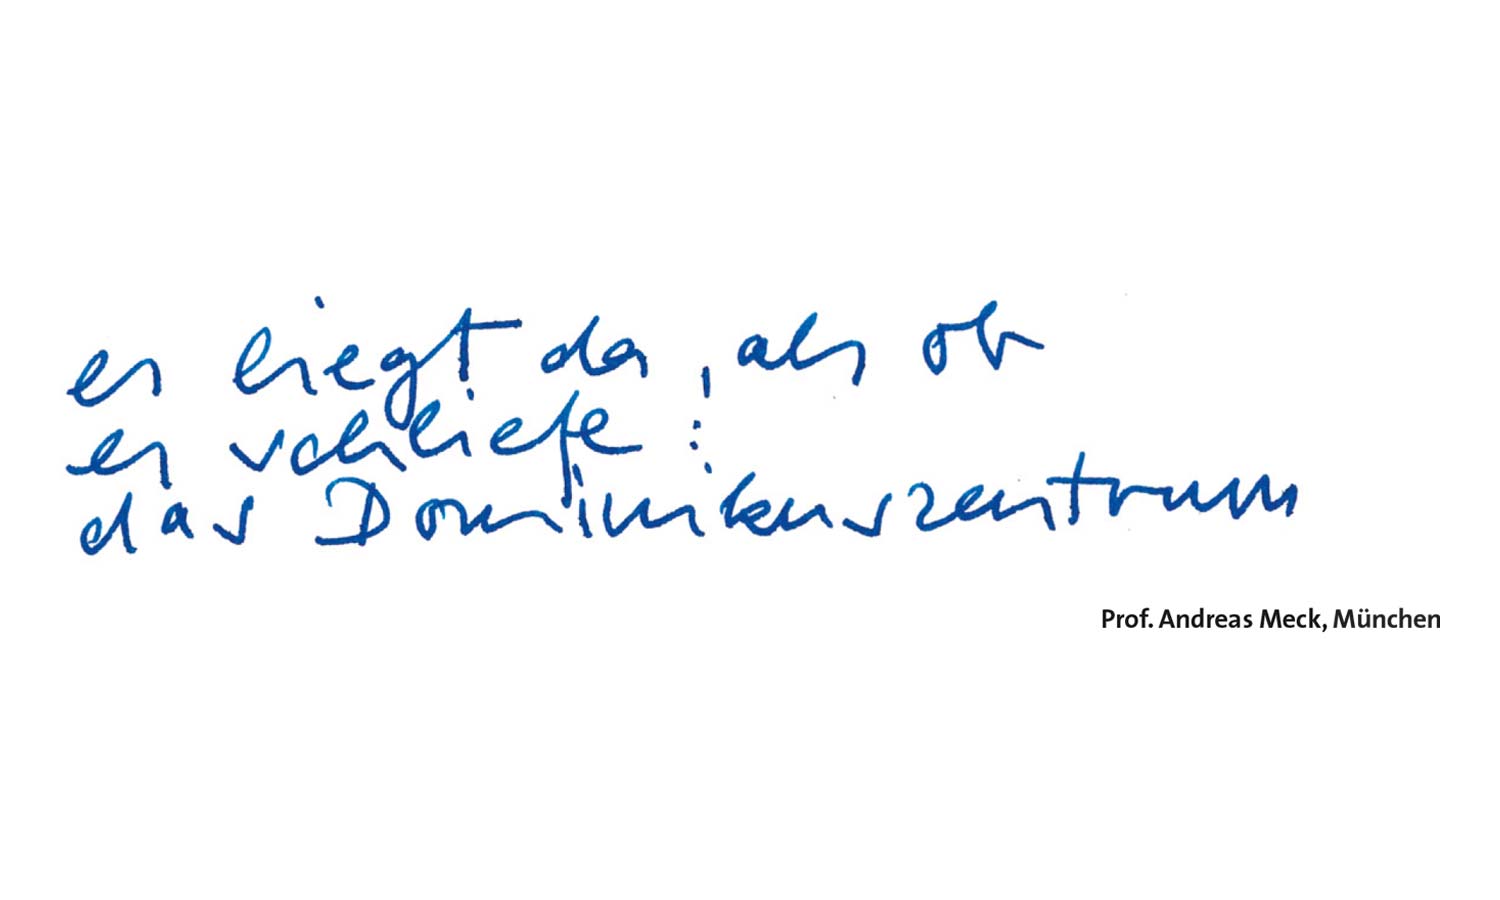 es liegt da, als ob
es schliefe:
das Dominikuszentrum
Prof. Andreas Meck, München